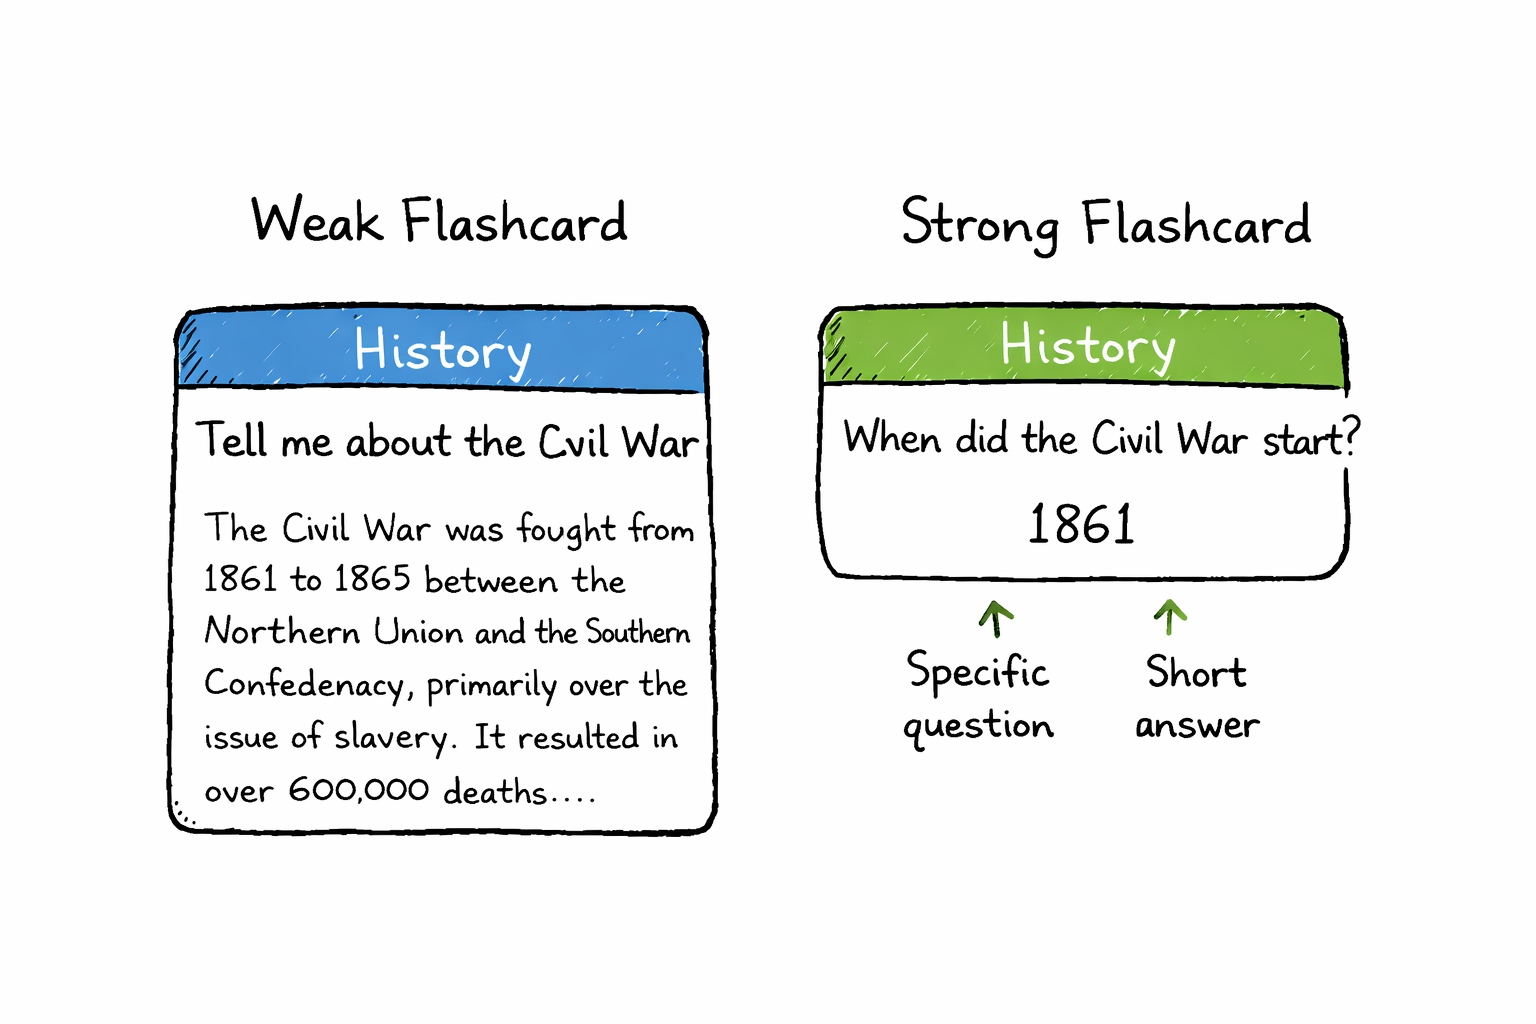 Weak Flashcard
History
Tell me about the Cvil War
The Civil War was fought from
1861 to 1865 between the
Northern Union and the Southern
Confedenacy, primarily over the
issue of slavery. It resulted in
over 600,000 deaths....
Strong Flashcard
History
When did the Civil War start?
1861
Specific
question
Short
answer